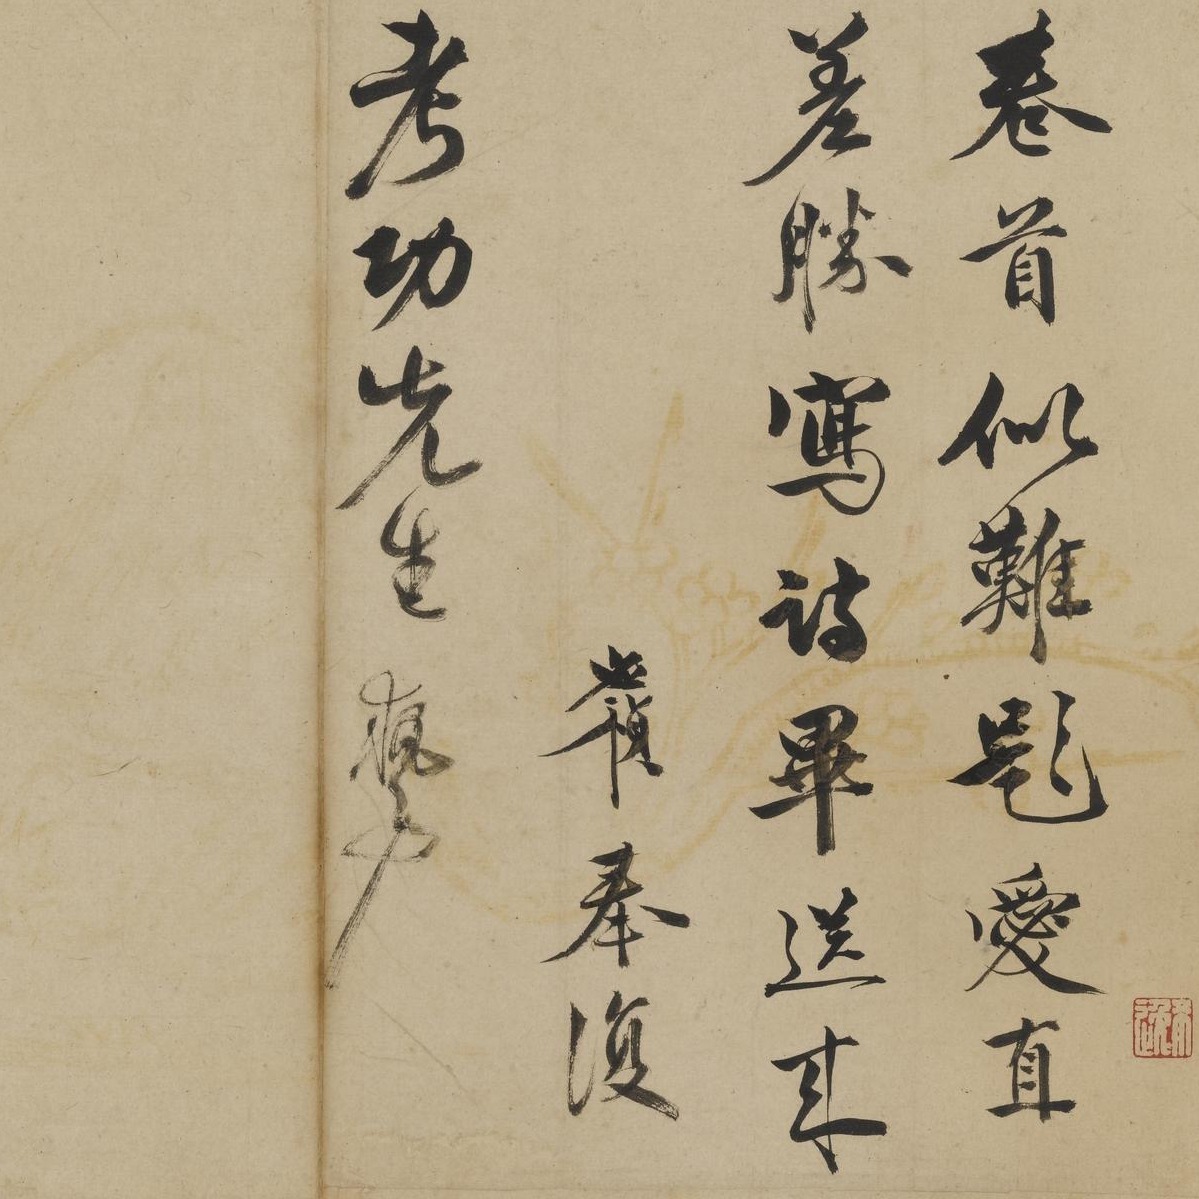 卷首似難題愛直
差勝寫詩畢送来
奉復
考功先生